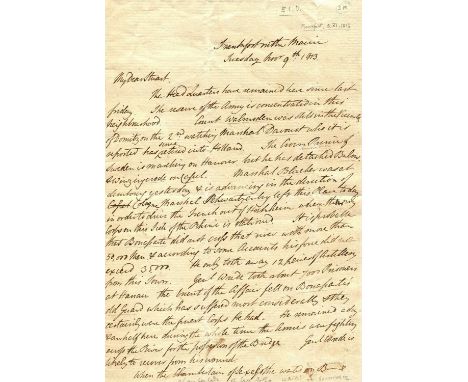 Frankfort on the Maine
Tuesday Novr 9th 1813
My Dear Stuart.
The Head Quarters have remained here since last
friday. The reserve of the Army is concentrated in this
neighbourhood Count Walmoden was also in the
of Domitz on the 2nd watching Marshal Davoust who it is
reported has since retired into Holland. The Crown Prince of
Sweden is marching on Hanover but he has detached Bulow
& Winzingerode on Cassel. Marshal Blucher was at
yesterday & is advancing in the direction of
Cologne Marshal Schwatzenberg left this Place today
in order to drive the French out of Hochheim when the only
Corps on this Side of the Rhine is stationed. It is probable
that Bonaparte did not cross that river with more than
50,000 Men & according to some Accounts his force did not
exceed 35000. He only took away 12 pieces of Artillery
from this Town. Genl Wrede took about 7000 Prisoners
at Hanau the brunt of the Affair fell on Bonaparte's
old Guard which has suffered most considerably & they
certainly were the finest Corps He had. He remained a day
& an half here during the whole time the Armies were fighting
across the River for the possession of the Bridge. Genl Wrede is
likely to recover from his wound.
When the Chamberlain of